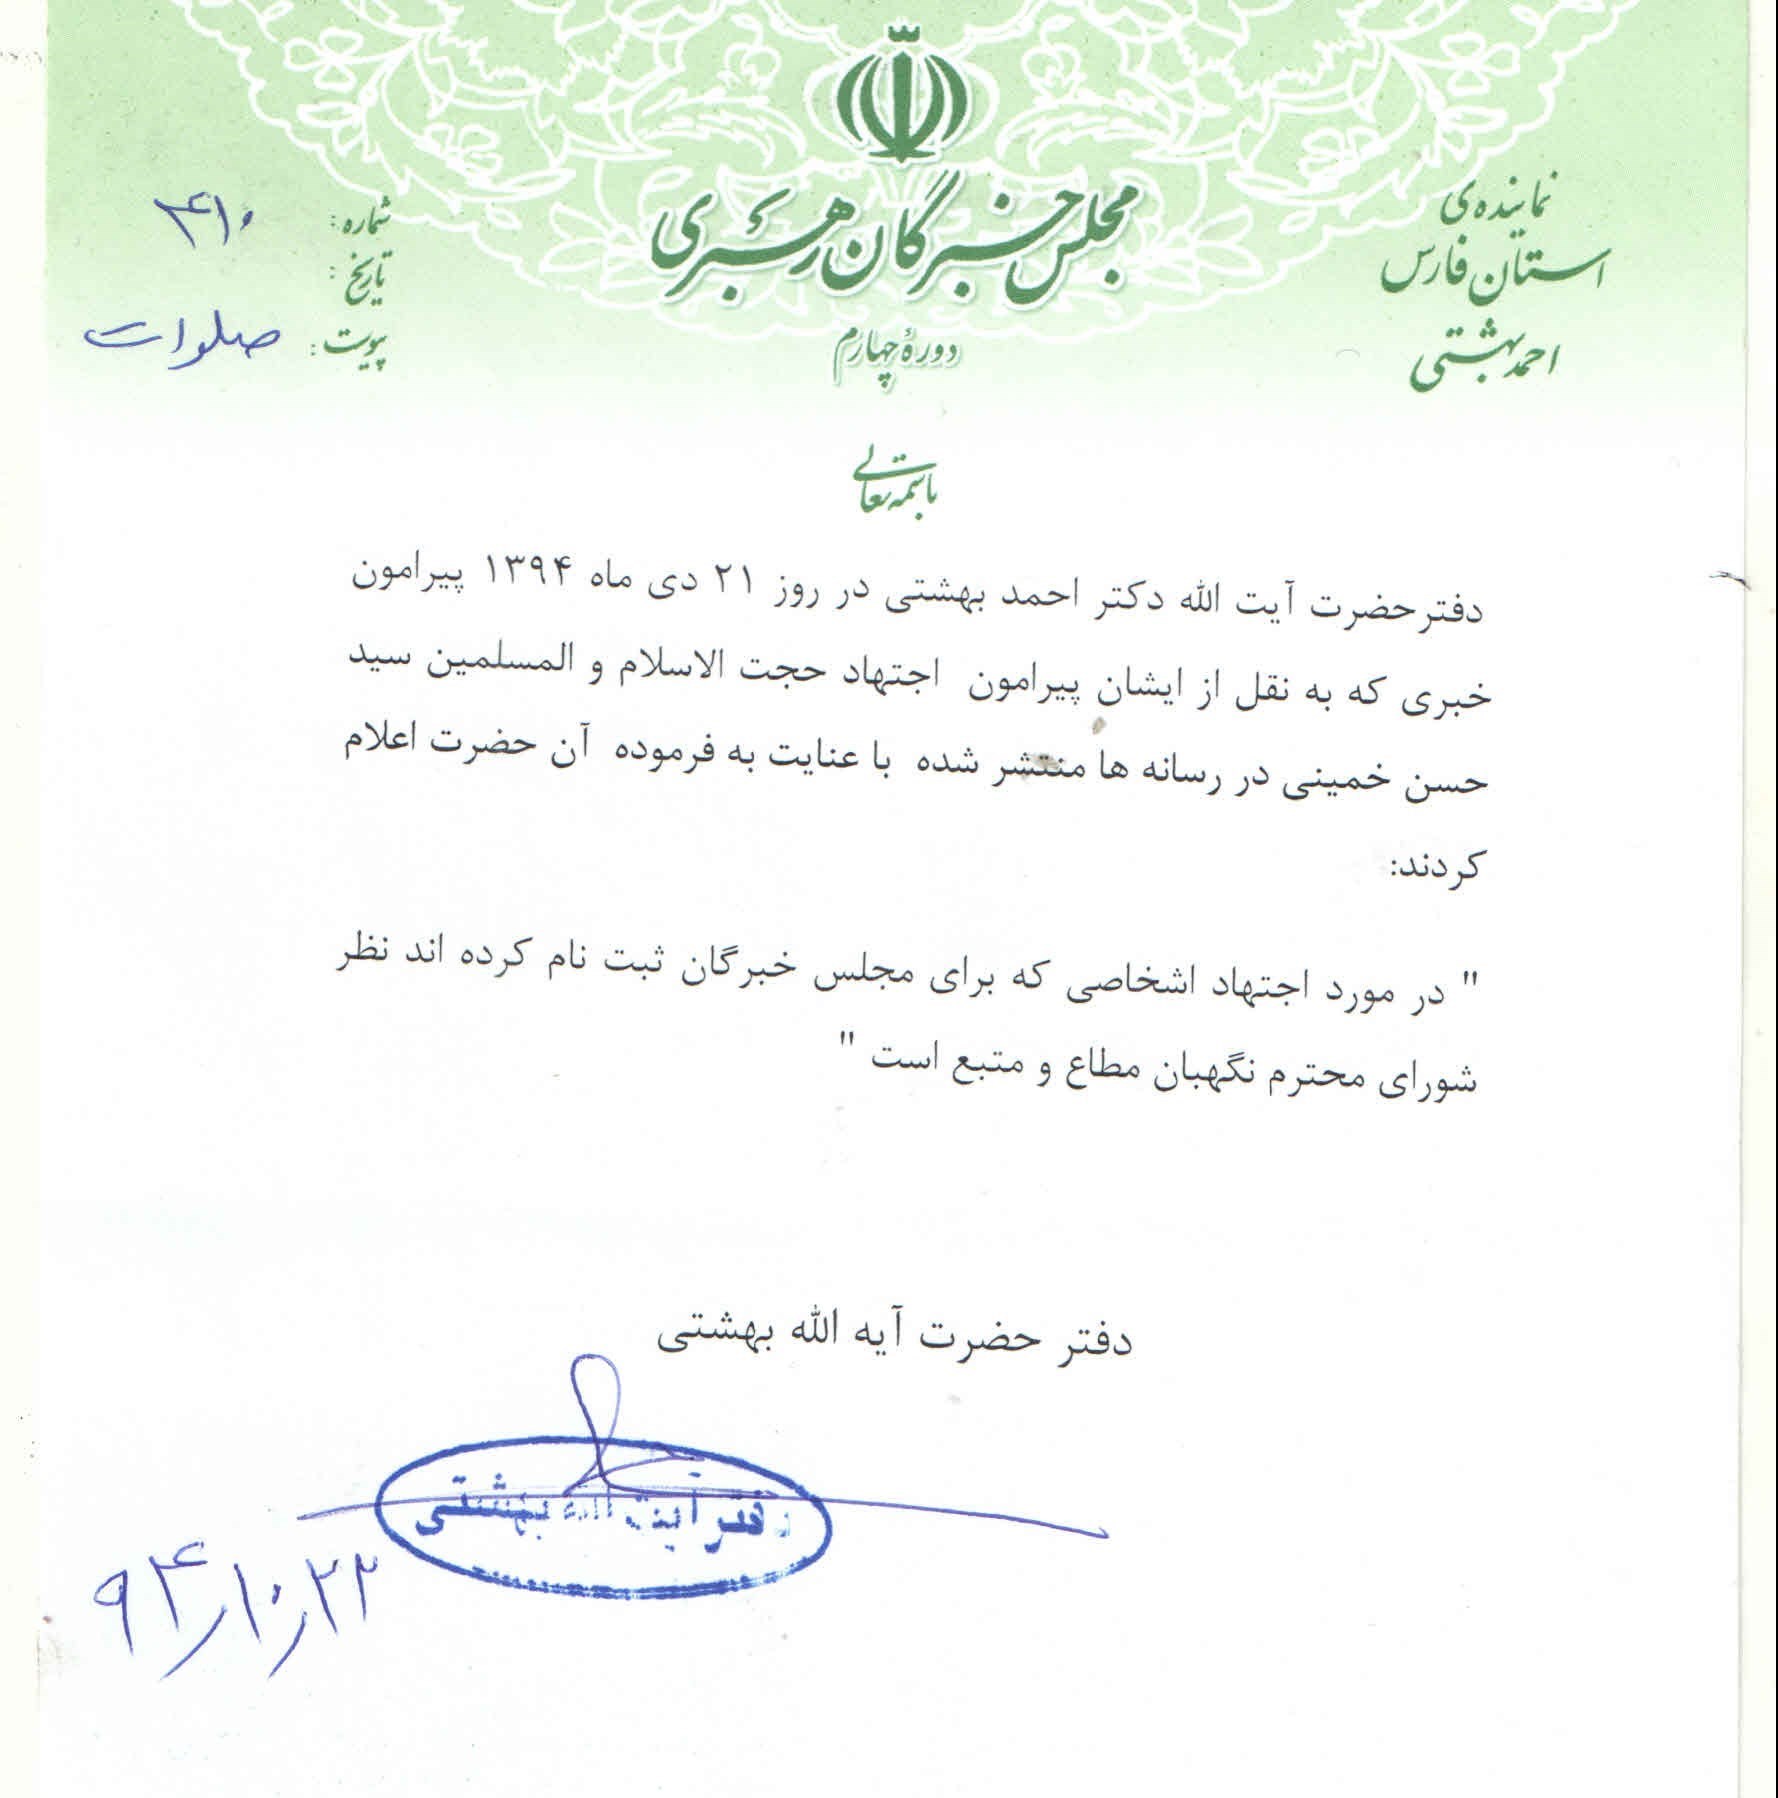 مجلس خبرگان رهبری
دورهٔ چهارم
نماینده‌ی
استان فارس
احمد بهشتی
شماره: ۴۱۰
تاریخ:
پیوست: صلوات
باسمه تعالی
دفترحضرت آیت الله دکتر احمد بهشتی در روز ۲۱ دی ماه ۱۳۹۴ پیرامون
خبری که به نقل از ایشان پیرامون اجتهاد حجت الاسلام و المسلمین سید
حسن خمینی در رسانه ها منتشر شده با عنایت به فرموده آن حضرت اعلام
کردند:
" در مورد اجتهاد اشخاصی که برای مجلس خبرگان ثبت نام کرده اند نظر
شورای محترم نگهبان مطاع و متبع است "
دفتر حضرت آیه الله بهشتی
دفتر آیت الله بهشتی
۹۴/۱۰/۲۲